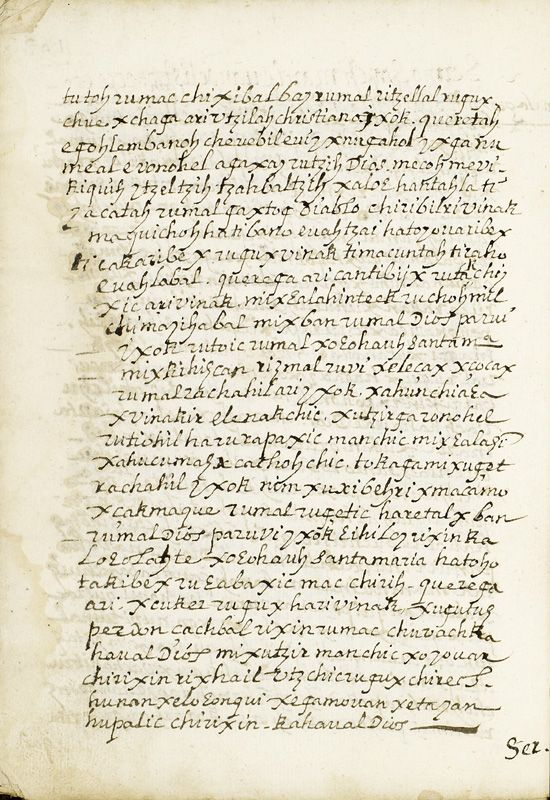 tutoh rumac chi xibalbay rumal ritzellal rugux
chue xchaga ari vtzilah christiano yxok. queretah
egohlembanoh chevebil evi yxnugahol yxga nu
meal evonohel agaxay rutzih Dias. mecoh mevi
Kiquih ytzeltzih tzahbaltzih xaloE hantahla ti
yacatah rumal gaxtog Diablo chiribil rivinak
maquichoh hatibano evahtzai hatoyovaribex
ti cakaribe x rugux vinak timacuntah tigaho
evahlabal. querega ari cantibij x rutachij
xic ari vinak, mixEalahinteck ruchohmil
chimayihabal mixban rumal Dios paruvi
yxok rutoic rumal xoEohauh santama
mixKihiscan rizmal ruvi xelocax xcocax
rumal rachahilari yxok, xahunchiaEa
xvinakir elenakchic, xutzirga ronohel
rutiohil harurapaxic manchic mixEalaş
xahucumag x cachohchic, tokagamixuget
rachahil yxok nim xuxibehri xmacamo
xcakmaque rumal rugetic haretal x ban
rumal Dios paruvi yxok Eihiloy rixin ka
LoEoLahte xoEohauh santamaria hatoho
takibex ru Eabaxic mac chirih. querega
ari, xcuker rugux harivinak, xugutug
perdon cachbal rixin rumac chuvach ka
haval Dios mixutzir manchic xoyovar
chirixin rixhail vtzchic rugux chirech.
hunan xeloEonqui xegamovan xetayan
hupalic chirixin. Kahaval Dios
Ser.